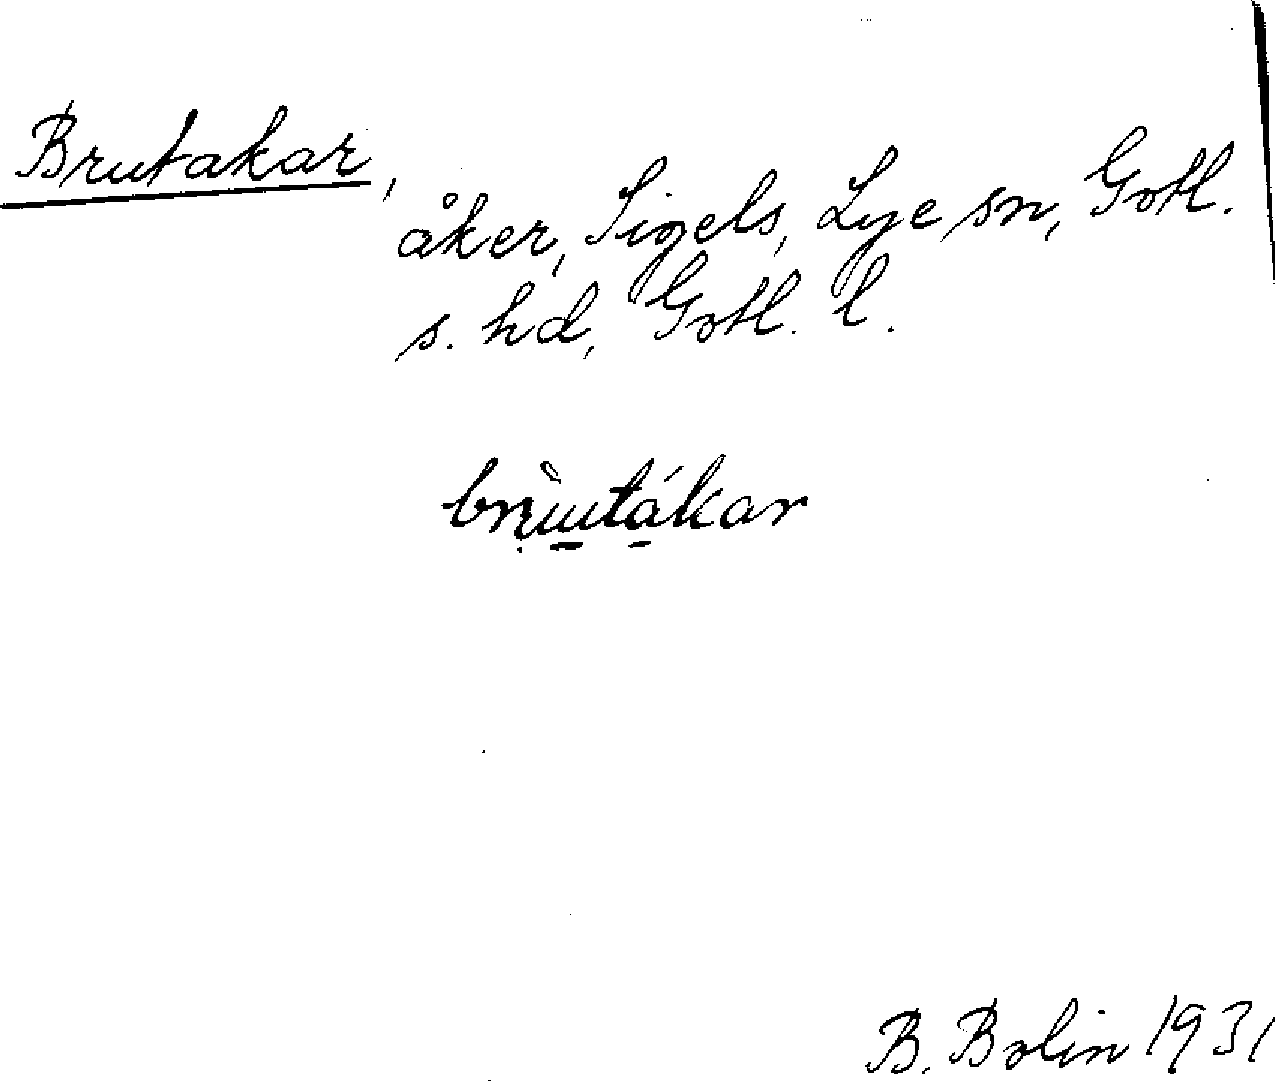 Brutakar,
åker, Sigels, Lye sn, Gotl.
s. hd, Gotl. l.
brùutákar
B. Bolin 1931